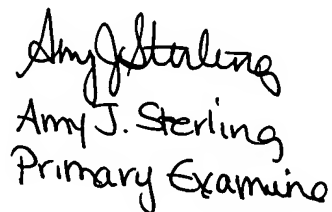 Amy J. Sterling
Amy J. Sterling
Primary Examine